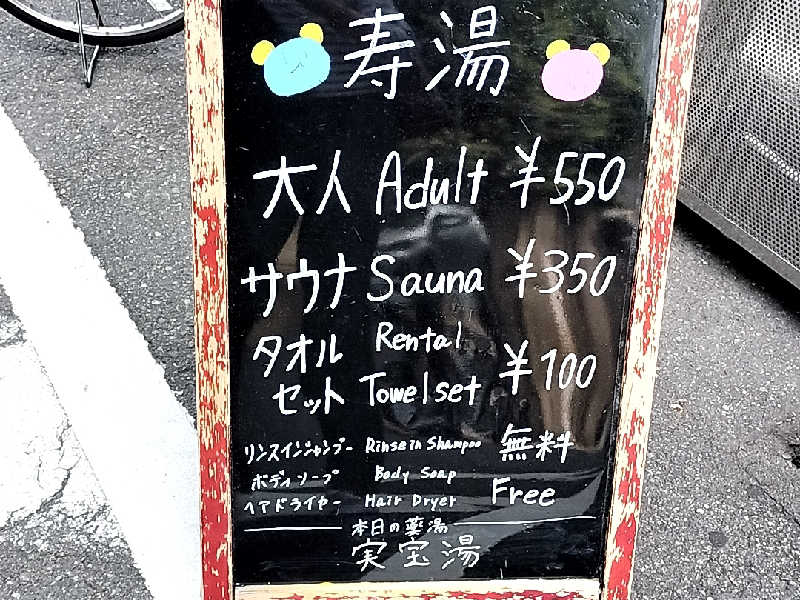 寿湯
大人 Adult ¥550
サウナ Sauna ¥350
タオル Rental
セット Towel set ¥100
リンスインシャンプー Rinse in Shampoo 無料
ボディソープ Body Soap
ヘアドライヤー Hair Dryer Free
本日の薬湯
実宝湯